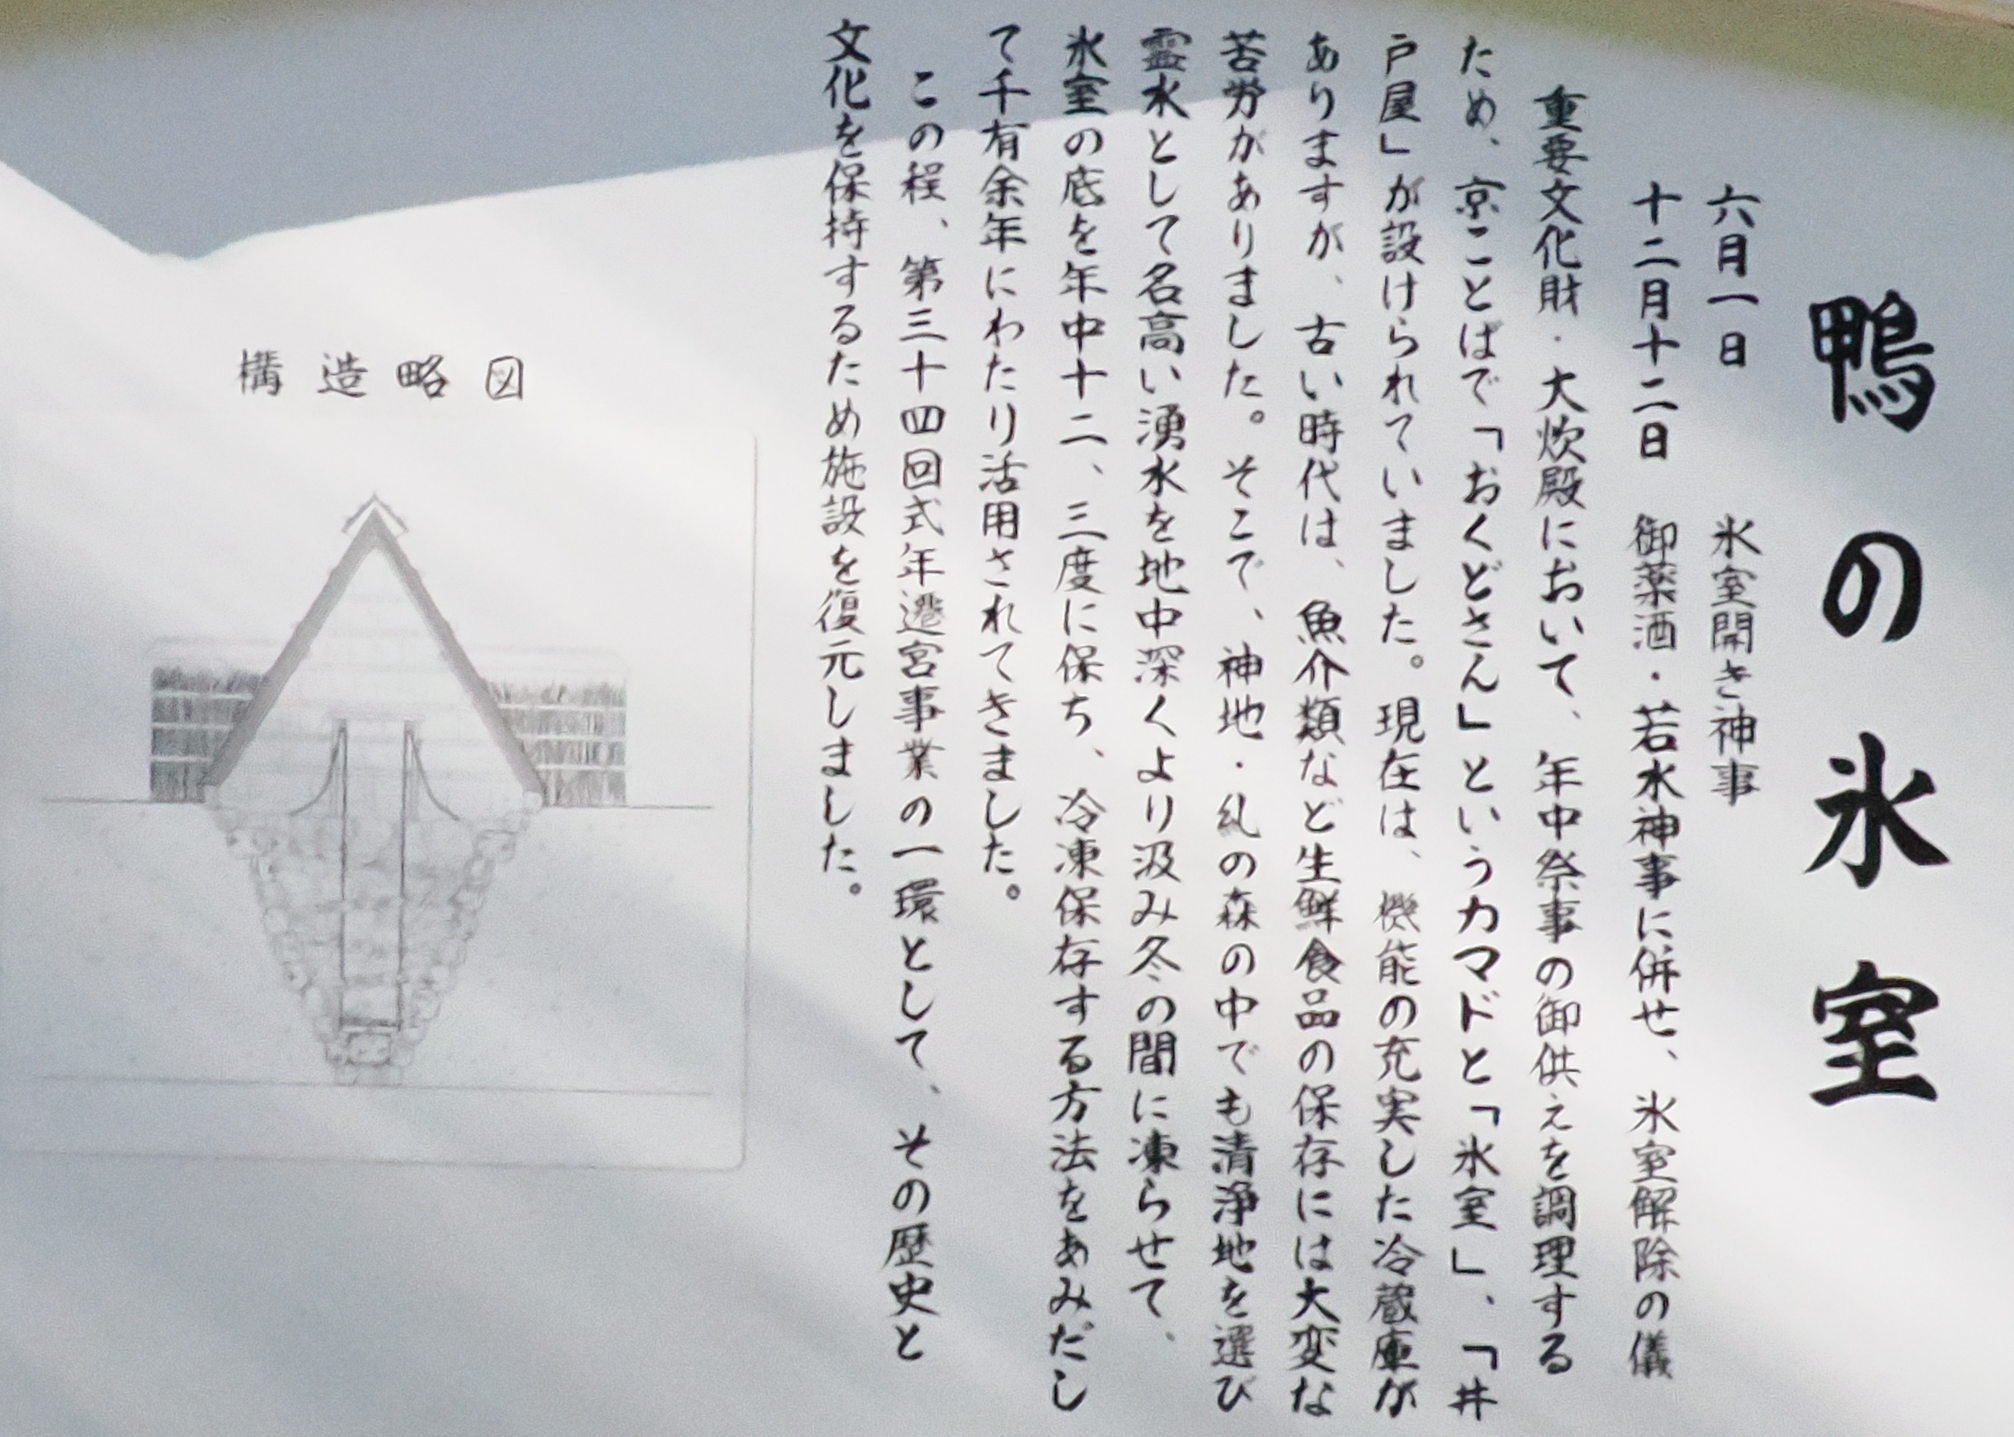 鴨の氷室
六月一日　氷室開き神事
十二月十二日　御薬酒・若水神事に併せ、氷室解除の儀
重要文化財・大炊殿において、年中祭事の御供えを調理する
ため、京ことばで「おくどさん」というカマドと「氷室」、「井
戸屋」が設けられていました。現在は、機能の充実した冷蔵庫が
ありますが、古い時代は、魚介類など生鮮食品の保存には大変な
苦労がありました。そこで、神地・糺の森の中でも清浄地を選び
霊水として名高い湧水を地中深くより汲み冬の間に凍らせて、
氷室の底を年中十二、三度に保ち、冷凍保存する方法をあみだし
て千有余年にわたり活用されてきました。
この程、第三十四回式年遷宮事業の一環として、その歴史と
文化を保持するため施設を復元しました。
構造略図